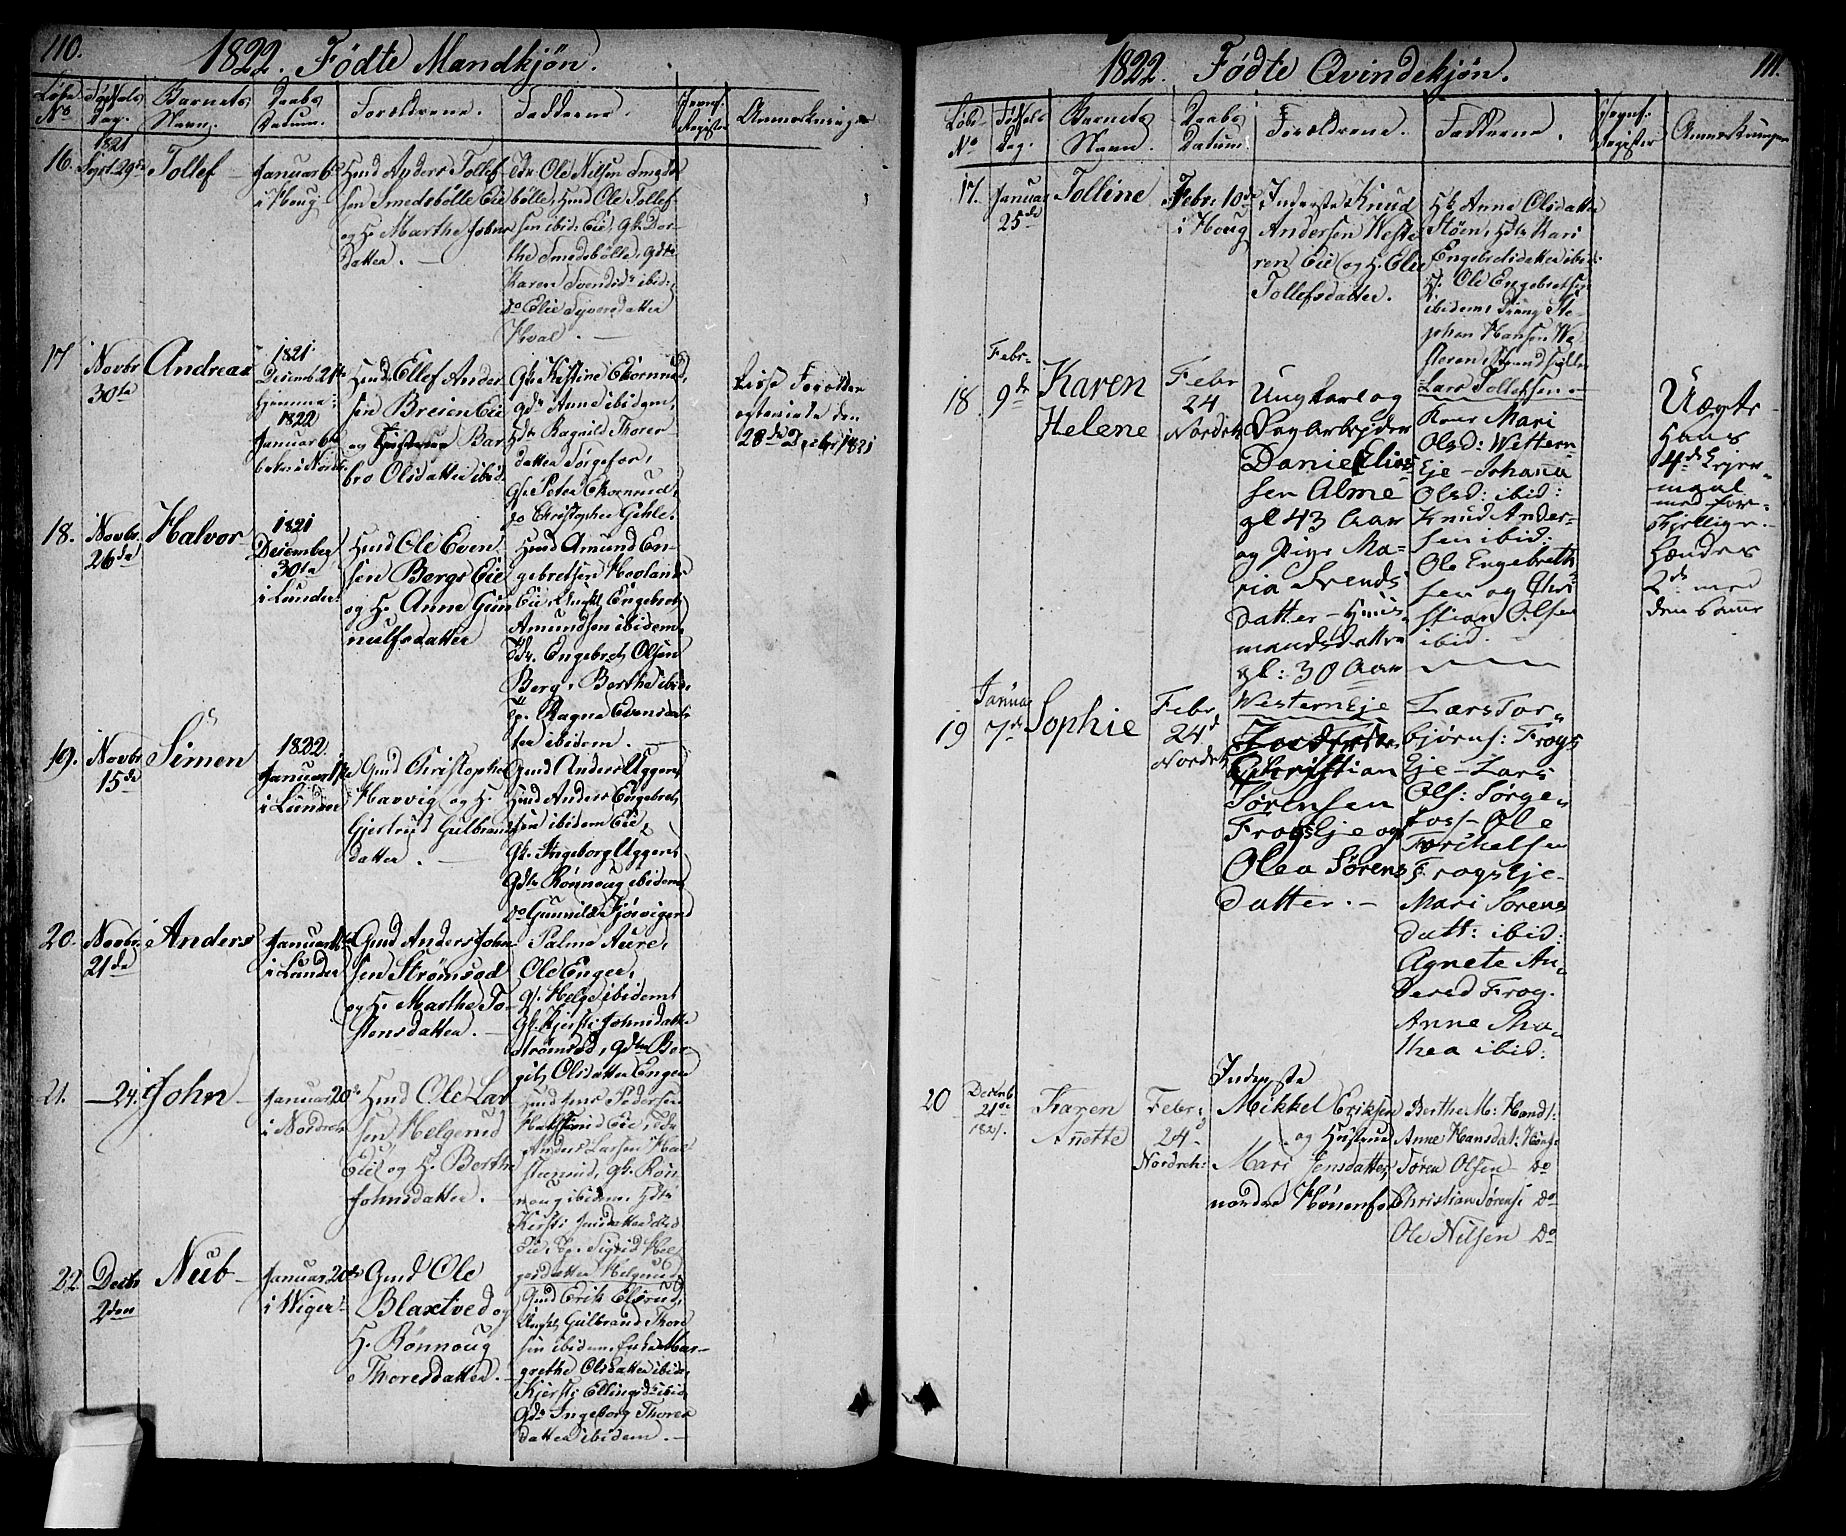 110.
1822. Fødte Mandkjøn.
Løbe No
Fødsels Dag.
Barnets Navn.
Daabs Datum.
Forældrene.
Fadderne.
Jevnf. Register
Anmerkninger
16.
1821
Sept. 29de
Tollef
Januar 6te
i Houg
Huusd Anders Tollef
sen Smedsbølle Eie
og H. Marthe Johns
datter.
Ole Nilsen Smeds
bølle, Hmd Ole Tollef
sen ibid: Eie, Gk: Dor-
the Smedsbølle, Gdte
Karen Svendsd: ibid:
do Elie Syversdatter
Hval.
17
Novbr
30te
Andreas
1821
Decemb 21de
hjemme:
1822
Januar 6te
i Nord
Hmd Ellef Ander
sen Breien Eie
og Bar
bro Olsdatter ibid
Gk. Kistine Ekornrud,
gdte Anne ibidem,
Hdtr Ragnild Thorer
datter Sørgefos,
Gs. Peter Ekornrud,
do Christopher Gihle.
28de Decbr 1821
18.
Novbr.
26de
Halvor
1821
Decembr
30te
i Lunder
Hmd Ole Even
sen Bergs Eie
og H. Anne Gun
nulfsdatter
Hmd Amund En-
gebretsen Hovlands
Eie, Ungkl Engebret
Amundsen ibidem,
Engebret Olsen
Berg, Berthe ibid:
Pp. Ragne Evensdat
ter ibidem.
19.
Novbr
15de
Simen
1822
Januar 1te
i Lunder
Gmd Christopher
Harvig og H.
Gjertrud Gulbrands
datter.
Gmd Anders Uggen,
Hmd Anders Engebret
sen ibidem Eie,
Gk. Ingeborg Uggen,
Gdtr Rønnoug ibidem
do Gunnild Sjørvigen
20.
Novbr
21de
Anders
Januar 1te
i Lunder
Gmd Anders John
sen Strømsod
og H. Marthe To-
stensdatter.
Palme Aure,
Ole Enger,
Gs. Helge ibidem,
Gk. Kjersti Johnsdatter
Strømsod, Gdtr Ber-
git Olsdatter Enger
21.
— 24.
John
Januar 20de
i Nordre
Hmd Ole Lar
sen Helgerud
Eie og H. Berthe
Johnsdatter.
Hmd Jens Pedersen
Eie,
Anders Larsen
Gk. Rön-
noug ibidem, Hdtr
Kirsti Jansdatter ibid
Eie, Pp. Sigrid Hel
gesdatter Helgerud
22
Decbr
2den
Nub
Januar 20de
i Wiger
Gmd Ole
Blaxtved og
H. Rønnoug
Thoresdatter.
Gmd Erik Elsrud,
Ungkl Gulbrand Thore
sen ibidem, Mar-
grethe Olsdatter ibid.
Kjersti Ellingsd: ibid
Gdtr Ingeborg Thores
datter ibidem.
111.
1822. Fødte Qvindekjøn.
Løbe No
Fødsels Dag.
Barnets Navn.
Daabs Datum
Forældrene.
Fadderne.
Jevnf. Register
Anmerkninger
17.
Januar
25de
Tolline
Febr: 10de
i Houg
Inderste Knud
Andersen Weste
ren Eie og H. Elie
Tollefsdatter.
Hk Anne Olsdatter
Støen, Hdtr Kari
Engebretsdatter ibid:
H. Ole Engebretsen
ibidem, Dreng Ste-
phan Hansen We
steren,
Lars Tollefsen
18
Febr.
9de
Karen
Helene
Febr
24
Nordreh
Ungkarl og
Bryarbejder
Daniel Elias
sen Alme
gl 43 Aar
og Pige Ma-
ria Svends
datter – Huus
mandsdatter
gl: 30 Aar
Western Eje
Kone Mari
Olsd: Western
Eje – Johana
Olsd: ibid:
Knud Ander-
sen ibid:
Ole Engebreth
sen og Chri
stian Olsen
ibid.
Uægte
Hans
4de Lejer-
maal
med for-
skjellige.
Hændes
2de med
den samme
19
Januar
7de
Sophie
Febr
24d
Nordreh
Christian
Sørensen
Frogs Eje og
Olea Sørens
datter.
Lars Tor-
bjørns: Frogs
Eje – Lars
Ols: Sørge-
foss – Ole
Torkelsen
Frogs Eje –
Mari Sørens
datt: ibid:
Agnete An-
dersd Frog.
Anne Ma-
thea ibid:
20
Decemb
21de
1821.
Karen
Anette
Febr
24d
Nordreh:
Inderste
Mikkel Eriksen
og Hustrue
Mari Jensdatter,
nordre Hønenfos
Berthe M: Hands:
Anne Hansdat: Høng
Søren Olsen – Do
Christian Sørens: Do
Ole Nilsen Do